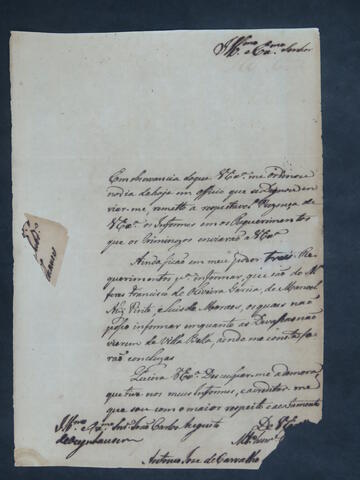 Illmo. e Exmo. Senhor
Em observancia do que V. Exa. me ordenou
no dia de hoje em officio que se dignou en
viar-me, remetto á respeitavel Prezença de
V. Exa. os Informes em os Requerimentos
que os Criminozos enviarão a V. Exa.
Ainda ficão em meu poder tres Re
querimentos pa. informar, que são do Al
feres Francisco de Oliveira Garcia, de Manoel
Alz Pinto, e Luis de Moraes, os quaes não
posso informar enquanto as Devassas não
vierem de Villa Bela, aonde me consta fo
rão concluzas
Queira V. Exa. Desculpar-me a demora
que tive nos meus Informes, e acreditar-me
que sou com o maior respeito e acatamento
Illmo. e Exmo. Snr. João Carlos Augusto
de Oeynhausen
De V. Exa.
Antonio Joze de Carvalho